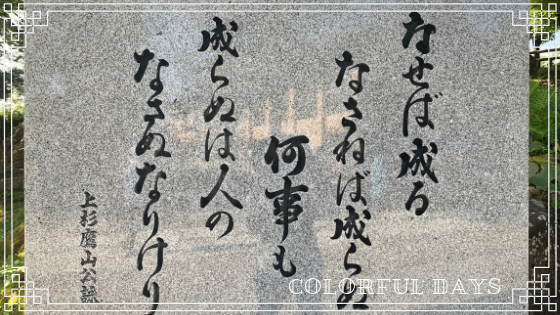 なせば成る
なさねば成らぬ
何事も
成らぬは人の
なさぬなりけり
上杉鷹山公詠
COLORFUL DAYS